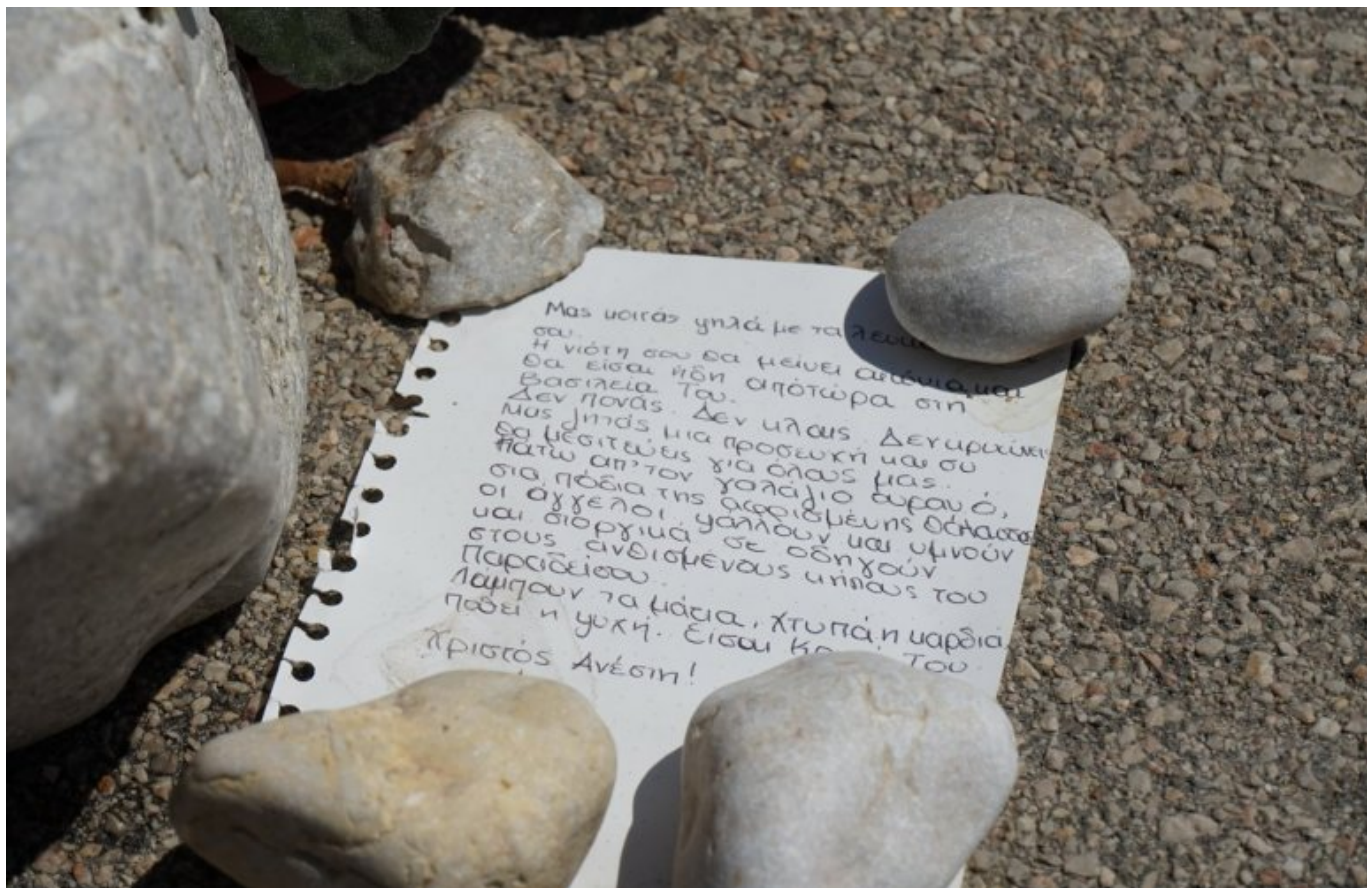 Μας κοιτάς ψηλά με τα λευκά
σου.
Η νιότη σου θα μείνει αιώνια και
θα είσαι ήδη απότώρα στη
Βασιλεία Του.
Δεν πονάς. Δεν κλαις. Δεν κρυώνεις
Μας ζητάς μια προσευχή και συ
θα μεσιτεύεις για όλους μας.
Κάτω απ' τον γαλάζιο ουρανό,
στα πόδια της αφρισμένης θάλασσας
οι άγγελοι ψάλλουν και υμνούν
και στοργικά σε οδηγούν
στους ανθισμένους κήπους του
Παραδείσου.
Λάμπουν τα μάτια, χτυπά η καρδιά,
ποθεί η ψυχή. Είσαι Του
Χριστός Ανέστη!